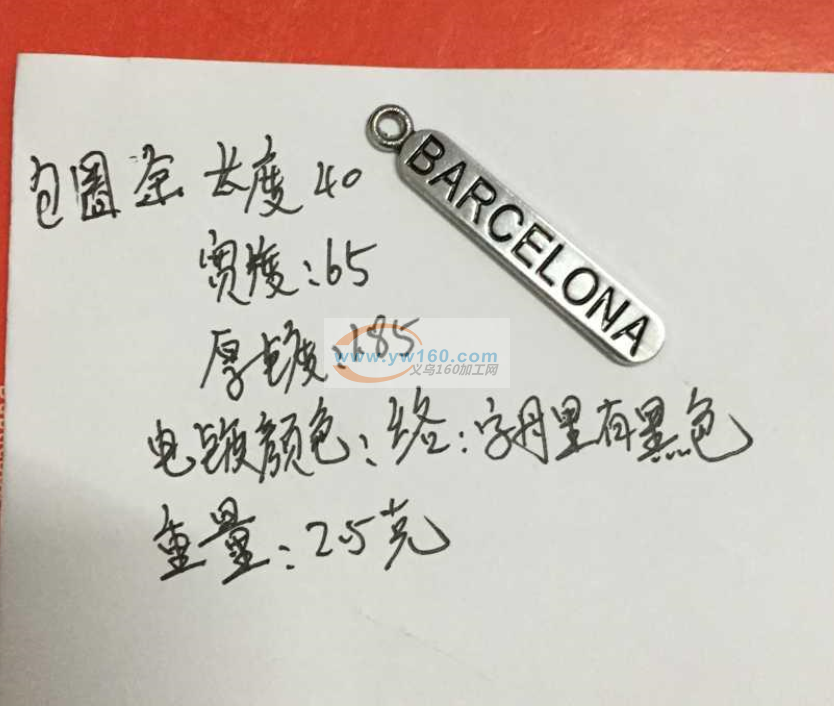 包圈京 长度 40
BARCELONA
宽度:65
厚度:1.85
www.yw160.com
义乌160加工网
电镀颜色:络:字母里有黑色
重量:2.5克